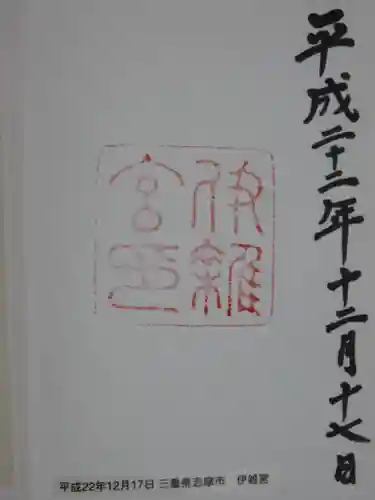 平成二十二年十二月十七日
伊雜
宮印
平成22年12月17日 三重県志摩市　伊雑宮